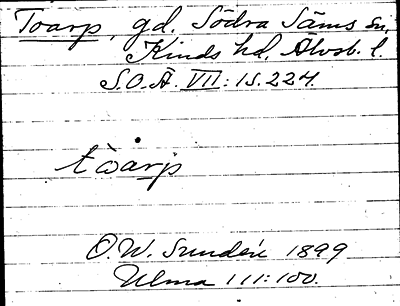 Toarp, gd. Södra Säms sn,
Kinds hd, Älvsb. l.
S.O.Ä. VII:1 s. 224.
tòarp
O.W. Sundén 1899
Ulma 111:100.